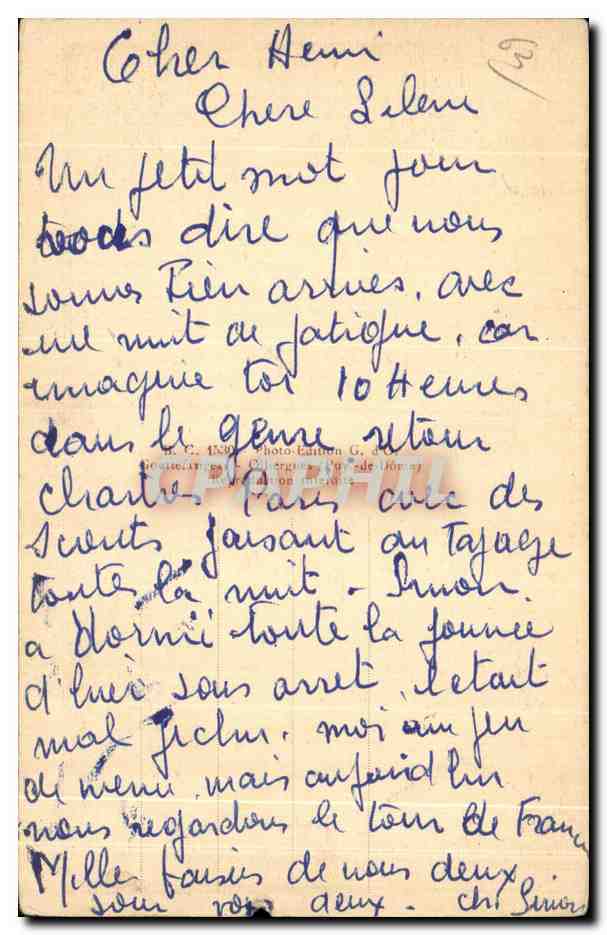 Cher Henri
Chere Selene
Un petit mot pour
vous dire que nous
sommes bien arrivés, avec
une nuit de fatigue, car
imagine toi 10 Heures
dans le genre retour
B. C. Photo-Edition G.
(Puy-de-Dôme)
Reproduction interdite
CPAPHIL
Chartres Paris avec des
scouts faisant du Tapage
toutes la nuit - Simon
a dormi toute la journée
d'hier sans arret, il etait
mal fichu. moi un peu
de meme, mais aujourd'hui
nous regardons le tour de France
Mille baisers de nous deux
pour vous deux - Simon